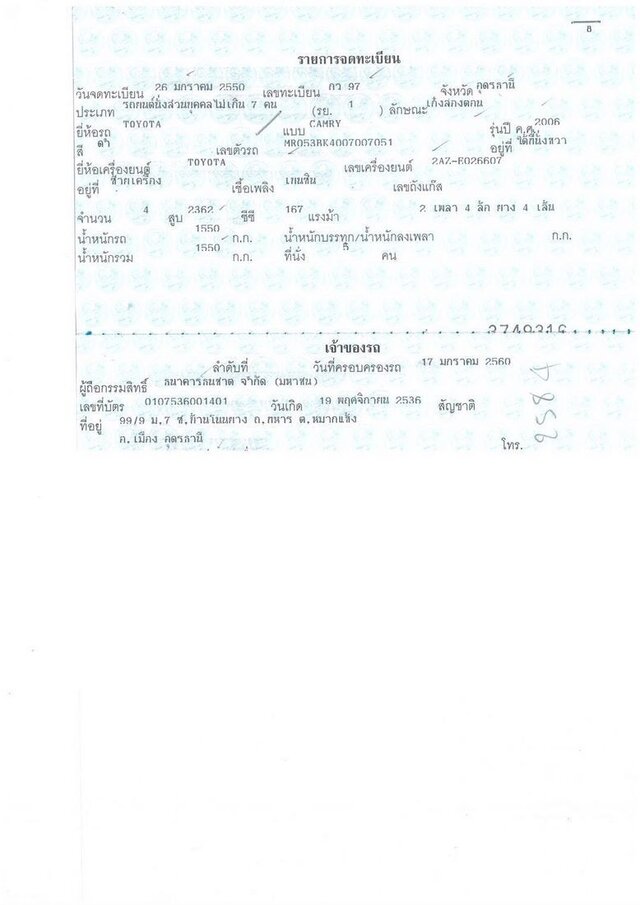 8
รายการจดทะเบียน
วันจดทะเบียน 26 มกราคม 2550 เลขทะเบียน กว 97 จังหวัด อุดรธานี
ประเภท รถยนต์นั่งส่วนบุคคลไม่เกิน 7 คน (รย. 1 ) ลักษณะ เก๋งสองตอน
ยี่ห้อรถ TOYOTA แบบ CAMRY รุ่นปี ค.ศ. 2006
สี ดำ เลขตัวรถ MR053BK4007007051 อยู่ที่ ใต้ที่นั่งขวา
ยี่ห้อเครื่องยนต์ TOYOTA เลขเครื่องยนต์ 2AZ-E026607
อยู่ที่ ซ้ายเครื่อง เชื้อเพลิง เบนซิน เลขถังแก๊ส
จำนวน 4 สูบ 2362 ซีซี 167 แรงม้า 2 เพลา 4 ล้อ ยาง 4 เส้น
น้ำหนักรถ 1550 ก.ก. น้ำหนักบรรทุก/น้ำหนักลงเพลา ก.ก.
น้ำหนักรวม 1550 ก.ก. ที่นั่ง 5 คน
เจ้าของรถ
ลำดับที่ วันที่ครอบครองรถ 17 มกราคม 2560
ผู้ถือกรรมสิทธิ์ ธนาคารธนชาต จำกัด (มหาชน)
เลขที่บัตร 0107536001401 วันเกิด 19 พฤศจิกายน 2536 สัญชาติ
ที่อยู่ 99/9 ม.7 ซ.บ้านโนนยาง ถ.ทหาร ต.หมากแข้ง
อ.เมือง อุดรธานี
โทร.
9584